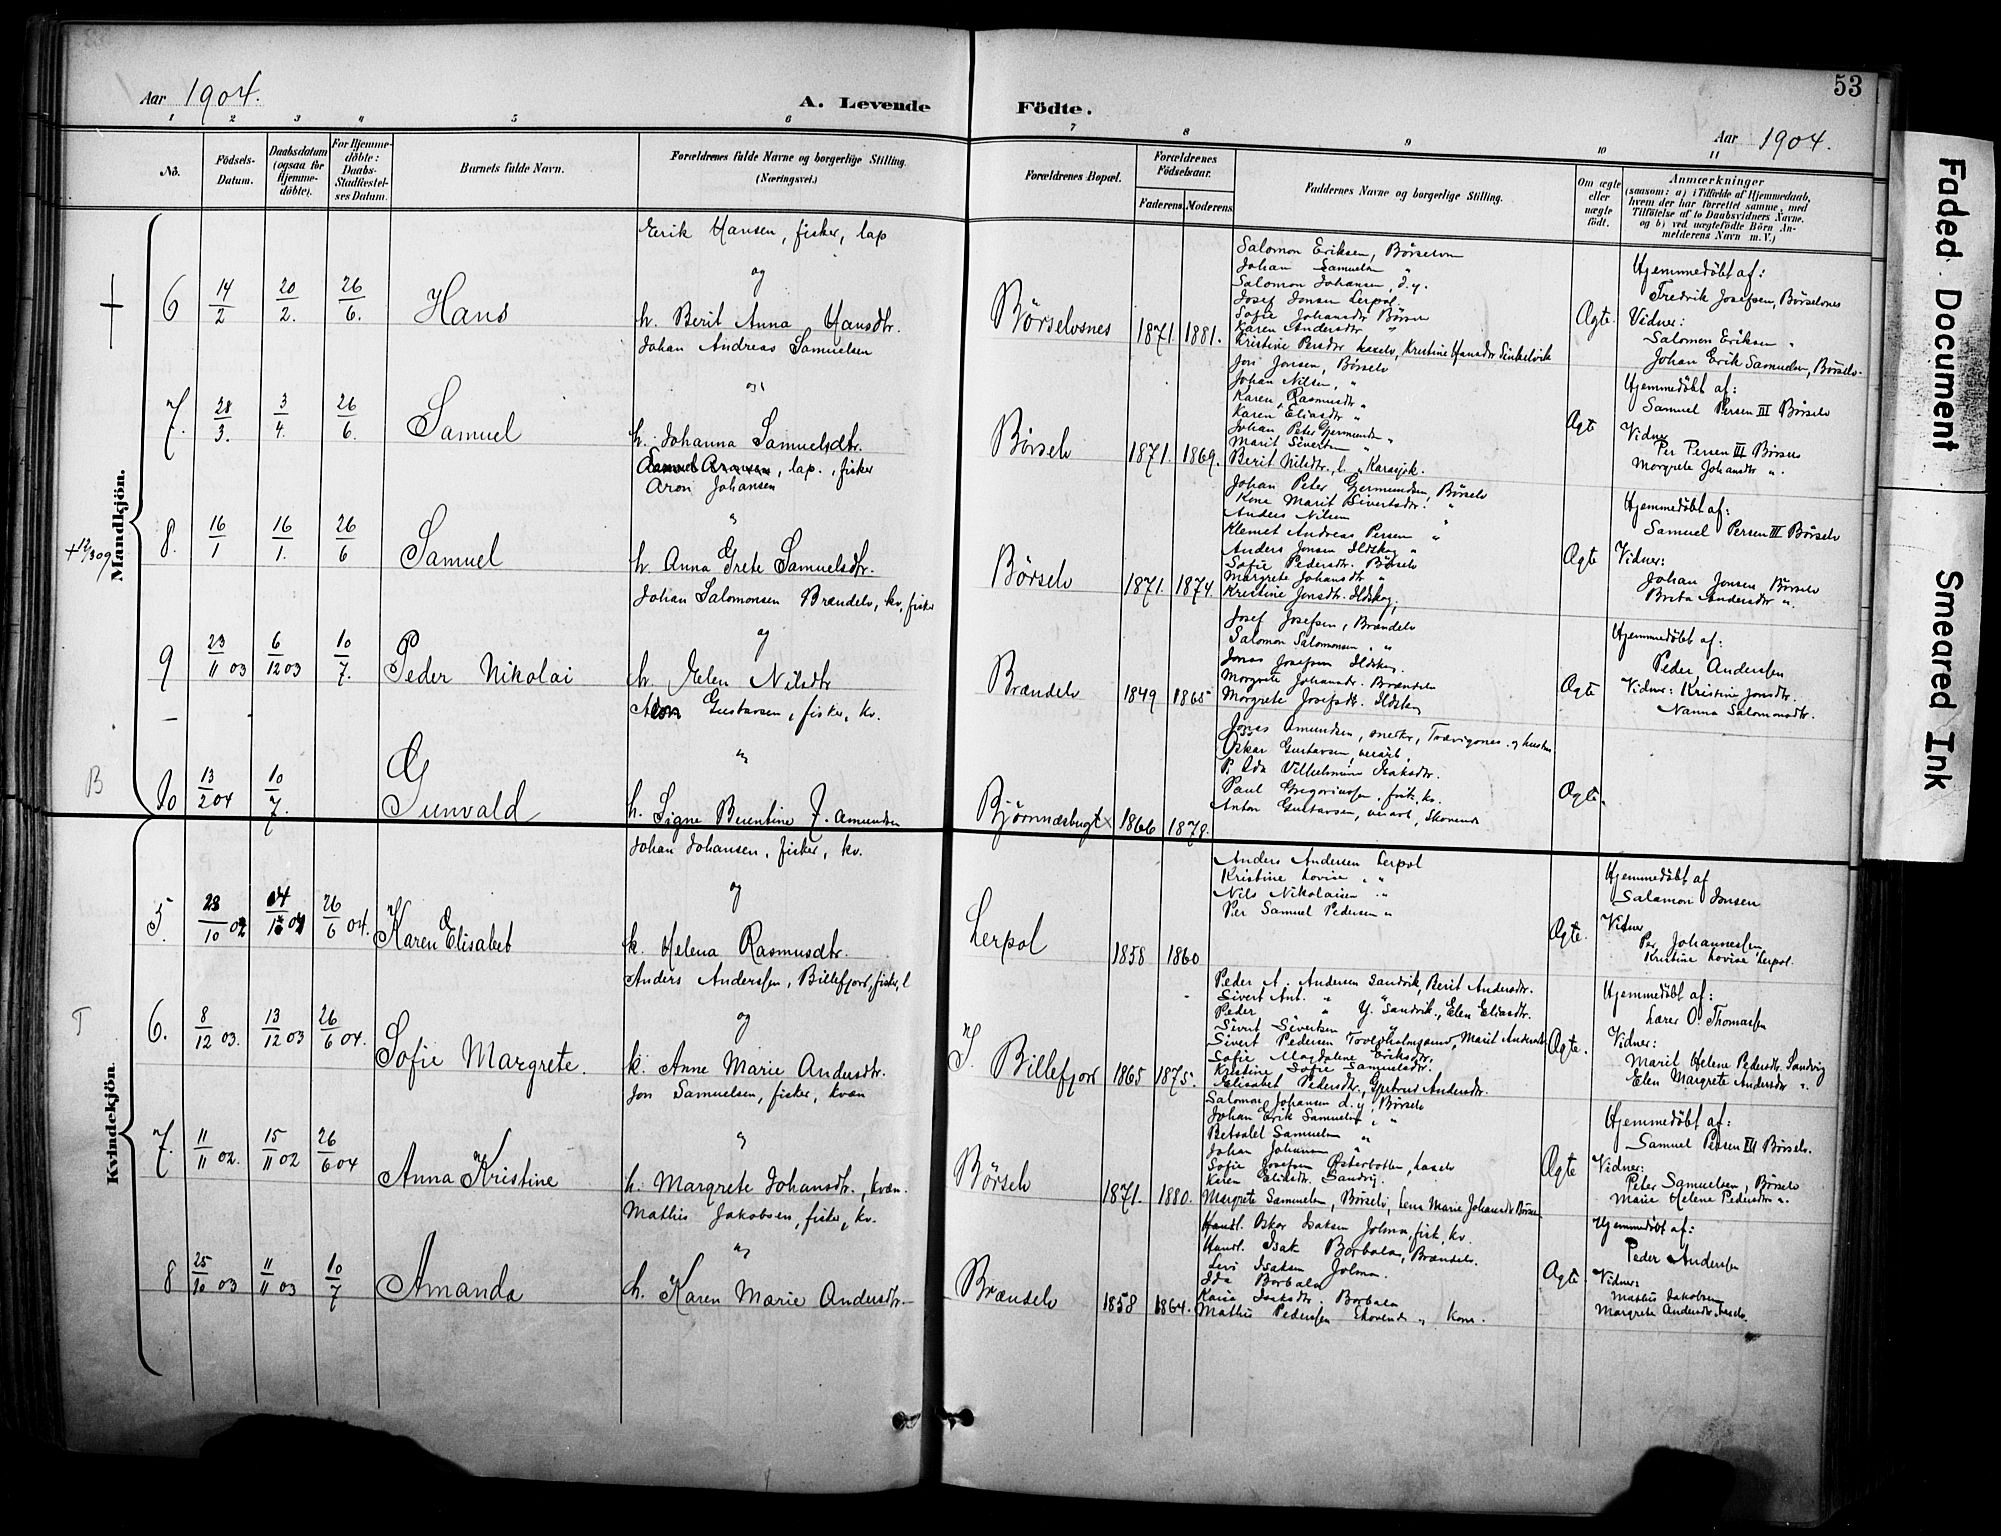 53
Aar 1904.
A. Levende Födte.
Aar 1904.
1 2 3 4 5 6 7 8 9 10 11
No.
Födsels-Datum.
Daabsdatum (ogsaa for Hjemmedöbte).
For Hjemmedöbte: Daabs-Stadfæstelses Datum.
Barnets fulde Navn.
Forældrenes fulde Navne og borgerlige Stilling. (Næringsvei.)
Forældrenes Bopæl.
Forældrenes Födselsaar.
Faderens. Moderens.
Faddernes Navne og borgerlige Stilling.
Om ægte eller uægte födt.
Anmærkninger
(saasom: a) i Tilfælde af Hjemmedaab,
hvem der har forrettet samme, med
Tilföielse af to Daabsvidners Navne.
og b) ved uægtefödte Börn Anmelderens Navn m. V.)
Mandkjön.
6 14/2 20/2. 26/6. Hans
Erik Hansen, fisker, lap
og
h. Berit Anna Hansdtr.
Børselvsnes 1871. 1881.
Salomon Eriksen, Børselvn
Johan Samuelsn "
Salomon Johansen, d.y.
Josef Jonsen Lerpol.
Sofie Johansdtr Børselv
Karen Andersdtr "
Kristine Persdtr Laxelv, Kristine Hansdtr
Ægte.
Hjemmedøbt af:
Fredrik Josefsen, Børselvnes
Vidner:
Salomon Eriksen "
Johan Erik Samuelsen, Børselv.
7. 28/3. 3/4. 26/6. Samuel
Johan Andreas Samuelsen
og
h. Johanna Samuelsdtr.
Børselv 1871. 1869.
Jon Jonsen, Børselv
Johan Nilsen, "
Karen Rasmusdtr "
Karen Eliasdtr "
Johan Peter Germundsn "
Marit Sivertsn "
Berit Nilsdtr., l. " Karasjok.
Ægte
Hjemmedøbt af:
Samuel Persen III Børselv
Vidner
Per Persen III Børselv
Margrete Johansdtr ".
+ 12/3 09.
8. 16/1 16/1. 26/6 Samuel
Samuel Aronsen, lap., fisker
Aron Johansen
"
h. Anna Grete Samuelsdtr.
Børselv 1871. 1874
Johan Peter Germundsen, Børselv
Kone Marit Sivertsdtr. "
Anders Nilsen "
Klemet Andreas Persen "
Anders Jonsen Ildskog "
Sofie Pedersdtr. Børselv
Margrete Johansdtr "
Kristine Jonsdtr. Ildskog,
Ægte
Hjemmedøbt af:
Samuel Persen III Børselv
Vidner:
Johan Jonsen Børselv
Brita Andersdtr ".
9 23/11 03 6/12 03 10/7. Peder Nikolai
Johan Salomonsen Brændelv, kv, fisker
og
h. Elen Nilsdtr
Brændelv 1849 1865
Josef Josefsen, Brændelv
Salomon Salomonsen, "
Jonas Josefsen Ildskog.
Margrete Johansdr. Brændelv
Margrete Josefsdtr. Ildskog
Ægte
Hjemmedøbt af:
Peder Anderssen
Vidner: Kristine Jonsdtr.
Nanna Salomonsdtr.
B
10 13/2 04 10/7. Gunvald
Gustavsen, fisker, kv.
og
h. Signe Berentine F. Amundsen
Bjørnnæsbugt 1866 1878.
Jonas Amundsen, snedker,
Oskar Gustavsen,
P. Ida Vilhelmine Isaksdtr.
Paul Gregoriussen, fisk, kv.
Anton Gustavsen,
Ægte.
Kvindekjön.
5. 28/10 02 26/6 04. Karen Elisabet
Johan Johansen, fisker, kv.
og
k. Helena Rasmusdtr.
Lerpol 1858 1860
Anders Andersen Lerpol
Kristine Lovise, "
Nils Nikolaisen "
Per Samuel Pedersen "
Ægte.
Hjemmedøbt af
Salamon Jonsen
Vidner
Per Johannessen
Kristine Lovise Lerpol.
T
6. 8/12 03. 13/12 03 26/6 04. Sofie Margrete.
Anders Anderssen, Billefjord, fisker, l
og
k. Anne Marie Andersdtr.
I. Billefjor 1865 1875.
Peder A. Andersen Sandvik, Berit Andersdtr.
Sivert Ant. "
Peder " Y. Sandvik., Elen Eliasdtr.
Sivert Sivertsen
Sivert Pedersen
Sofie Magdalene Eriksdtr.
Kristine Sofie Samuelsdtr.
Elisabet Pedersdtr., Gjertrud Andersdtr.
Ægte.
Hjemmedøbt af:
Lærer O. Thomassen
Vidner:
Marit Helene Pedersdtr. Sandvig
Elen Margrete Andersdtr ".
7. 11/11 02. 15/11 02 26/6 04 Anna Kristine
Jon Samuelsen, fisker, kvæn
"
h. Margrete Johansdtr., kvæn.
Børselv 1871. 1880.
Salomon Johansen d.y. Børselv
Johan Erik Samuelsn, "
Betsalet Samuelsn "
Johan Johansen "
Sofie Josefsen Østerbotten, Laxelv
Karen Eliksdtr. Sandvig.
Margrete Samuelsn, Børselv, Lena Marie Johansdtr Børselv
Ægte
Hjemmedøbt af:
Samuel Persen III Børselv.
Vidner:
Peter Samuelsen, Børselv
Marie Helene Pedersdtr ".
8 25/10 03 11/11 03 10/7 Amanda
Mathis Jakobsen, fisker, kv.
og
h. Karen Marie Andersdtr.
Brændelv 1858 1864.
Handl. Oskar Isaksen Jolma, fisk, kv.
Handl. Isak Borbala, Brændelv.
Levi Isaksen Jolma.
Ida Borbala
Kaisa Isaksdtr. Borbala
Mathis Pederssen Skovend " Kone.
Ægte.
Hjemmedøbt af:
Peder Anderssen
Vidner:
Mathis Jakobsen
Margrete Andersdtr. Laxelv.
Faded Document
Smeared Ink